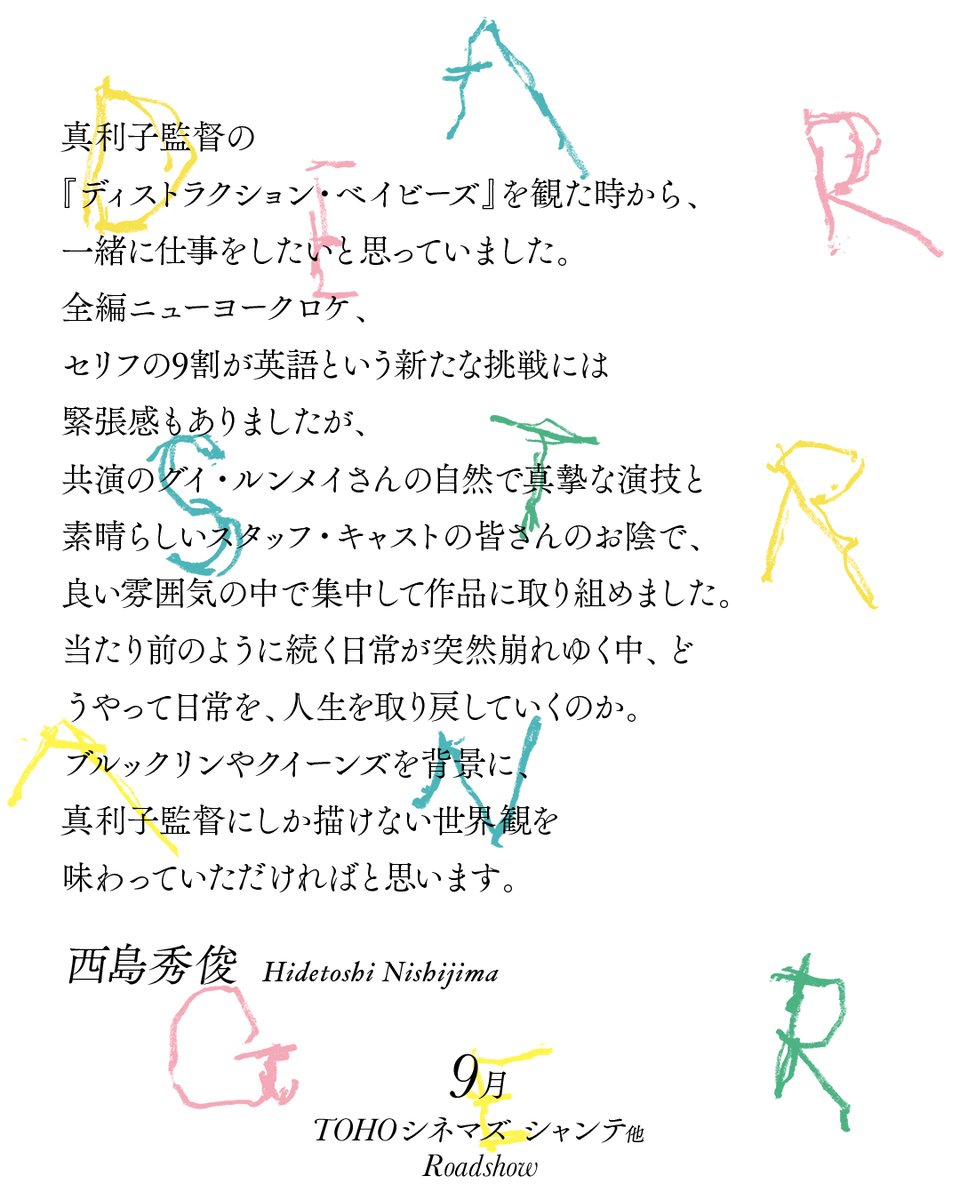 DEAR
真利子監督の
『ディストラクション・ベイビーズ』を観た時から、
一緒に仕事をしたいと思っていました。
全編ニューヨークロケ、
セリフの9割が英語という新たな挑戦には
緊張感もありましたが、
STR
共演のグイ・ルンメイさんの自然で真摯な演技と
素晴らしいスタッフ・キャストの皆さんのお陰で、
良い雰囲気の中で集中して作品に取り組めました。
当たり前のように続く日常が突然崩れゆく中、ど
うやって日常を、人生を取り戻していくのか。
AN
ブルックリンやクイーンズを背景に、
真利子監督にしか描けない世界観を
味わっていただければと思います。
西島秀俊 Hidetoshi Nishijima
GER
9月
TOHOシネマズ シャンテ他
Roadshow